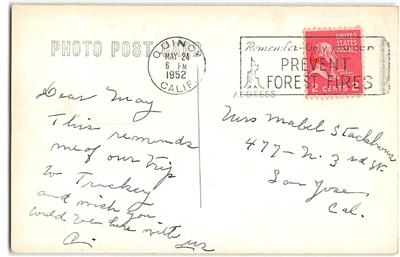 PHOTO POST
ADDRESS
QUINCY
MAY 24
6 PM
1952
CALIF.
Remember-Only you can
PREVENT
FOREST FIRES
UNITED STATES
2 CENTS 2
Dear May
This reminds
me of our trip
to Truckey
and wish you
could be here with us
Miss Mabel Stackhouse
477-N. 3rd St.
San Jose
Cal.